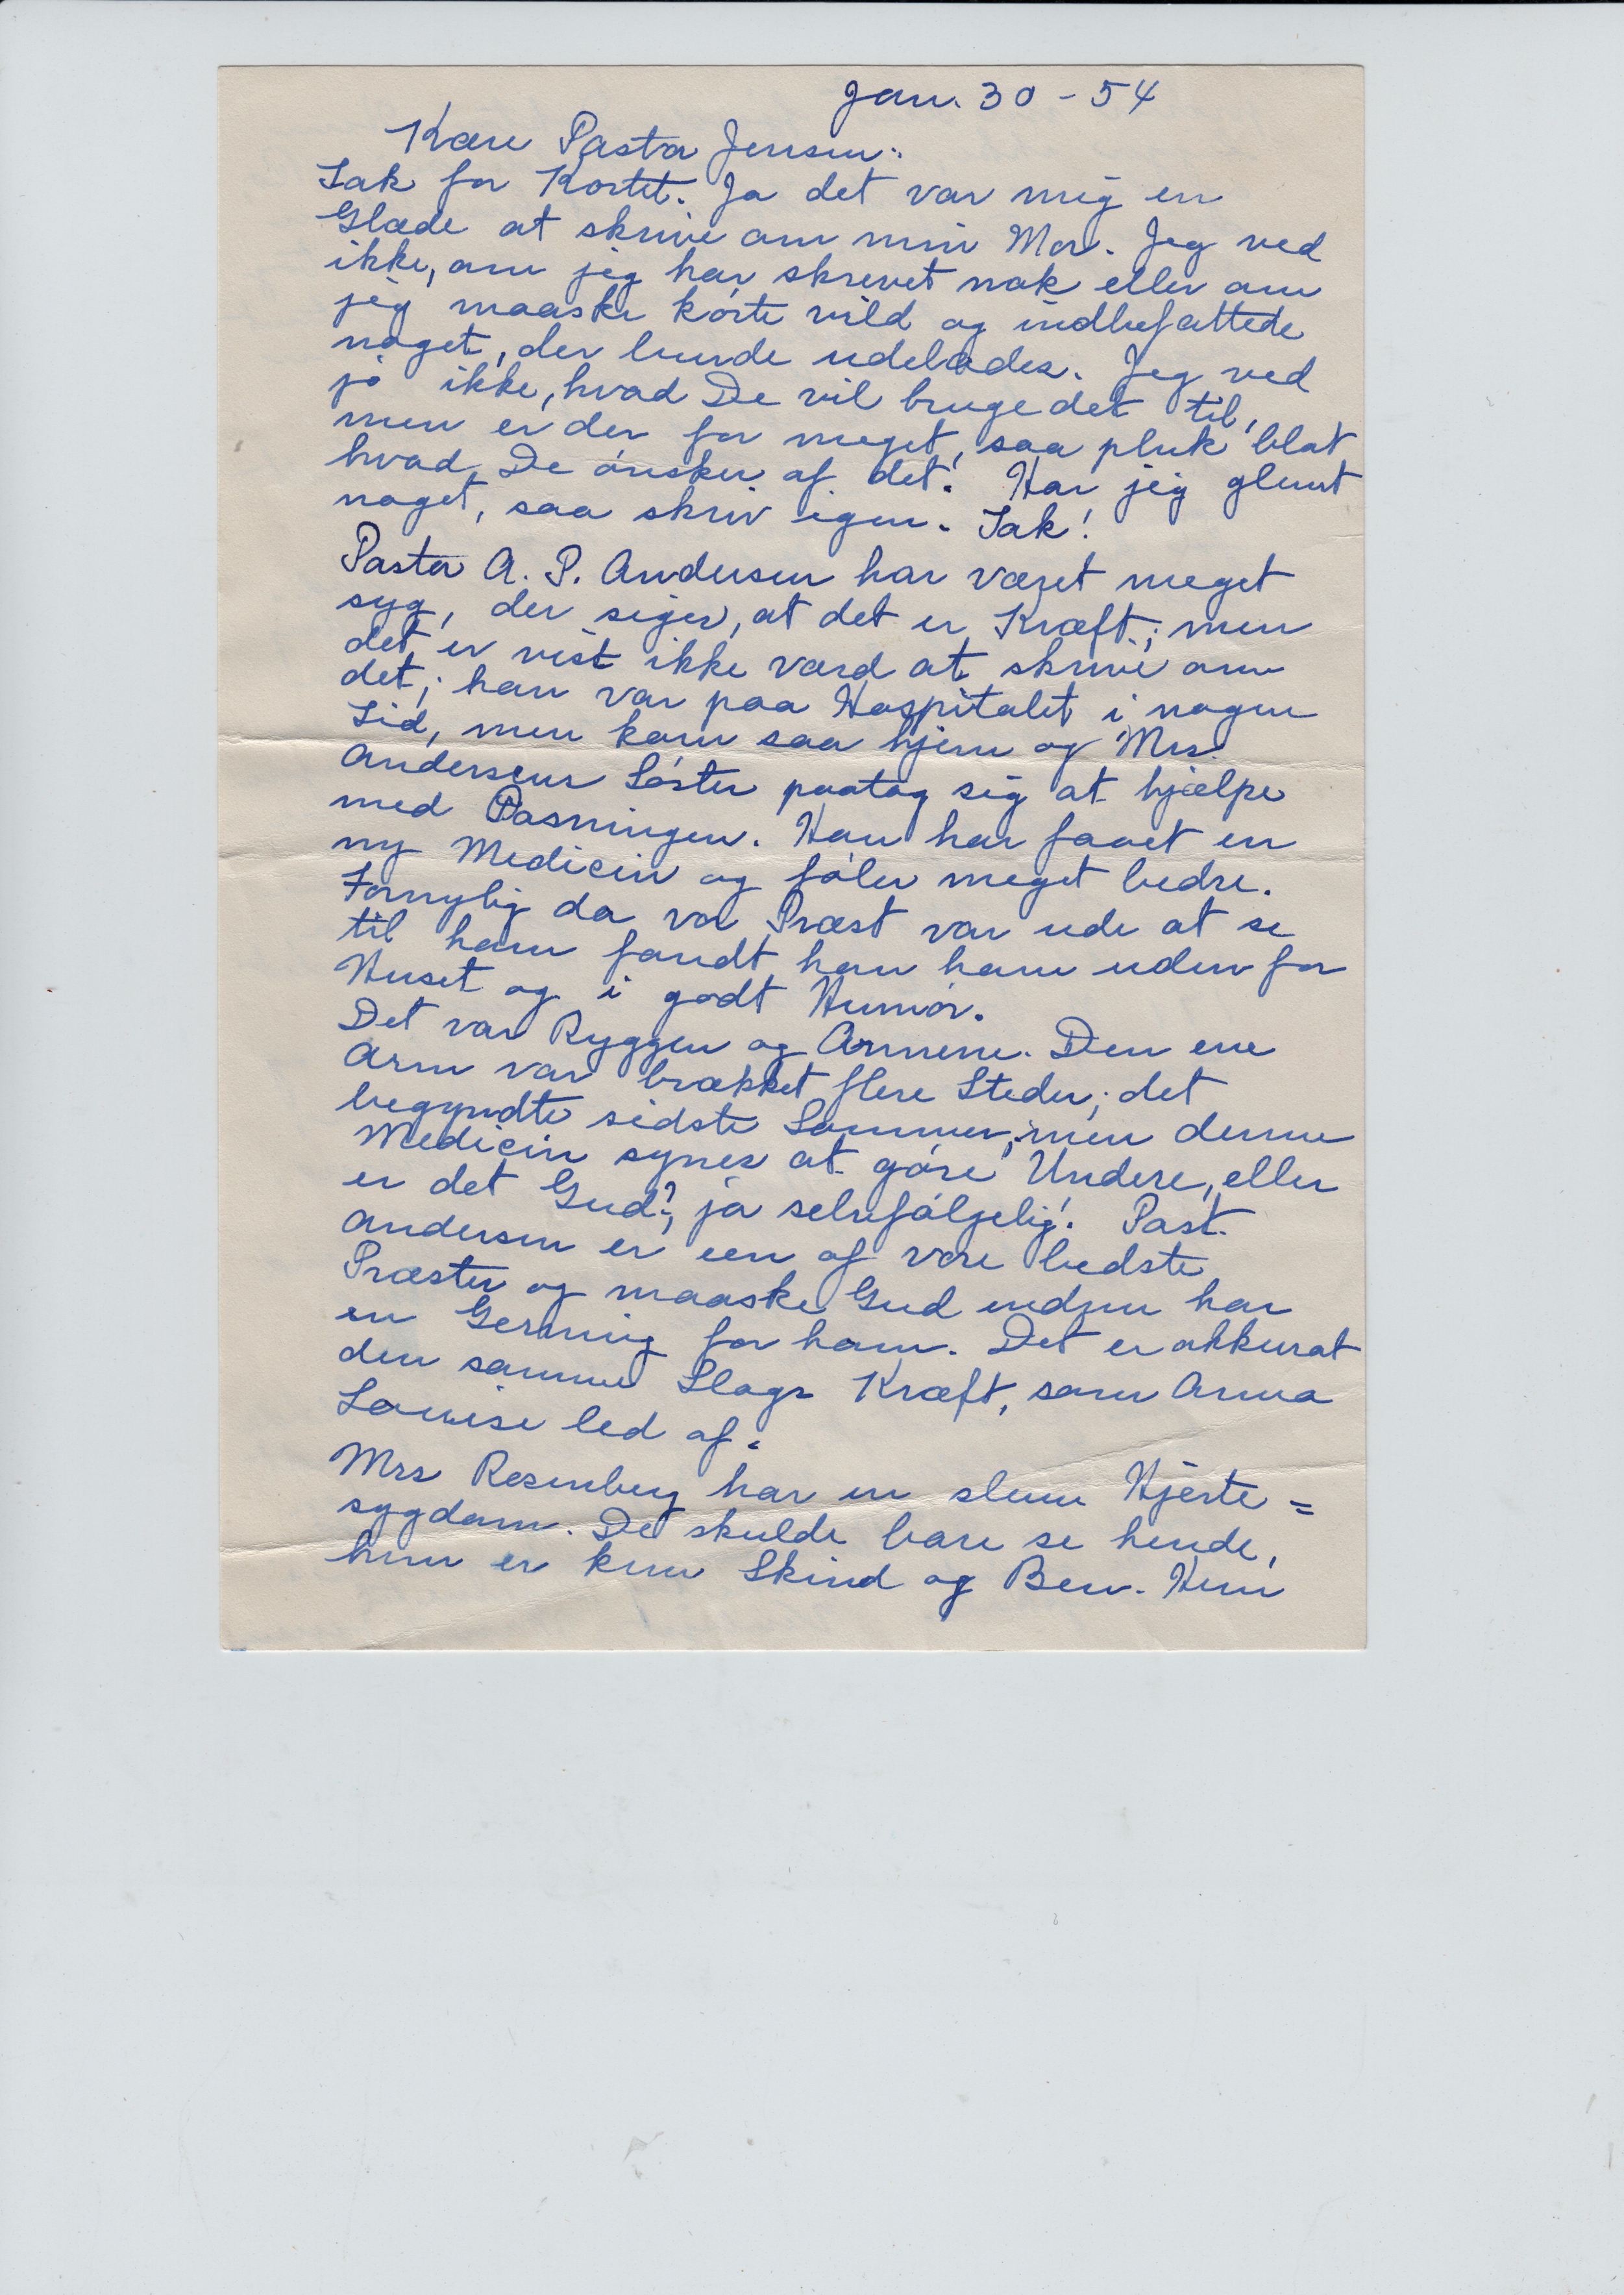 Jan. 30 - 54
Kære Pastor Jensen:
Tak for Kortet. Ja det var mig en
Glæde at skrive om min Mor. Jeg ved
ikke, om jeg har skrevet nok eller om
jeg maaske körte vild og indbefattede
noget, der burde udelades. Jeg ved
jo ikke, hvad De vil bruge det til,
men er der for meget, saa pluk blot
hvad De önsker af det! Har jeg glemt
noget, saa skriv igen. Tak!
Pastor A. P. Andersen har været meget
syg, der siges, at det er Kræft; men
det er vist ikke værd at skrive om
det; han var paa Hospitalet i nogen
Tid, men kom saa hjem og Mrs.
Andersens Söster paatog sig at hjælpe
med Pasningen. Han har faaet en
ny Medicin og föler meget bedre.
Fornylig da vor Præst var ude at se
til ham fandt han ham uden for
Huset og i godt Humör.
Det var Ryggen og Armene. Den ene
Arm var brækket flere Steder; det
begyndte sidste Sommer; men denne
Medicin synes at göre Undere, eller
er det Gud?, ja selvfölgelig! Past.
Andersen er een af vore bedste
Præster og maaske Gud endnu har
en Gerning for ham. Det er akkurat
den samme Slags Kræft, som Anna
Louise led af.
Mrs Rosenberg har en slem Hjerte=
sygdom. De skulde bare se hende,
hun er kun Skind og Ben. Hun